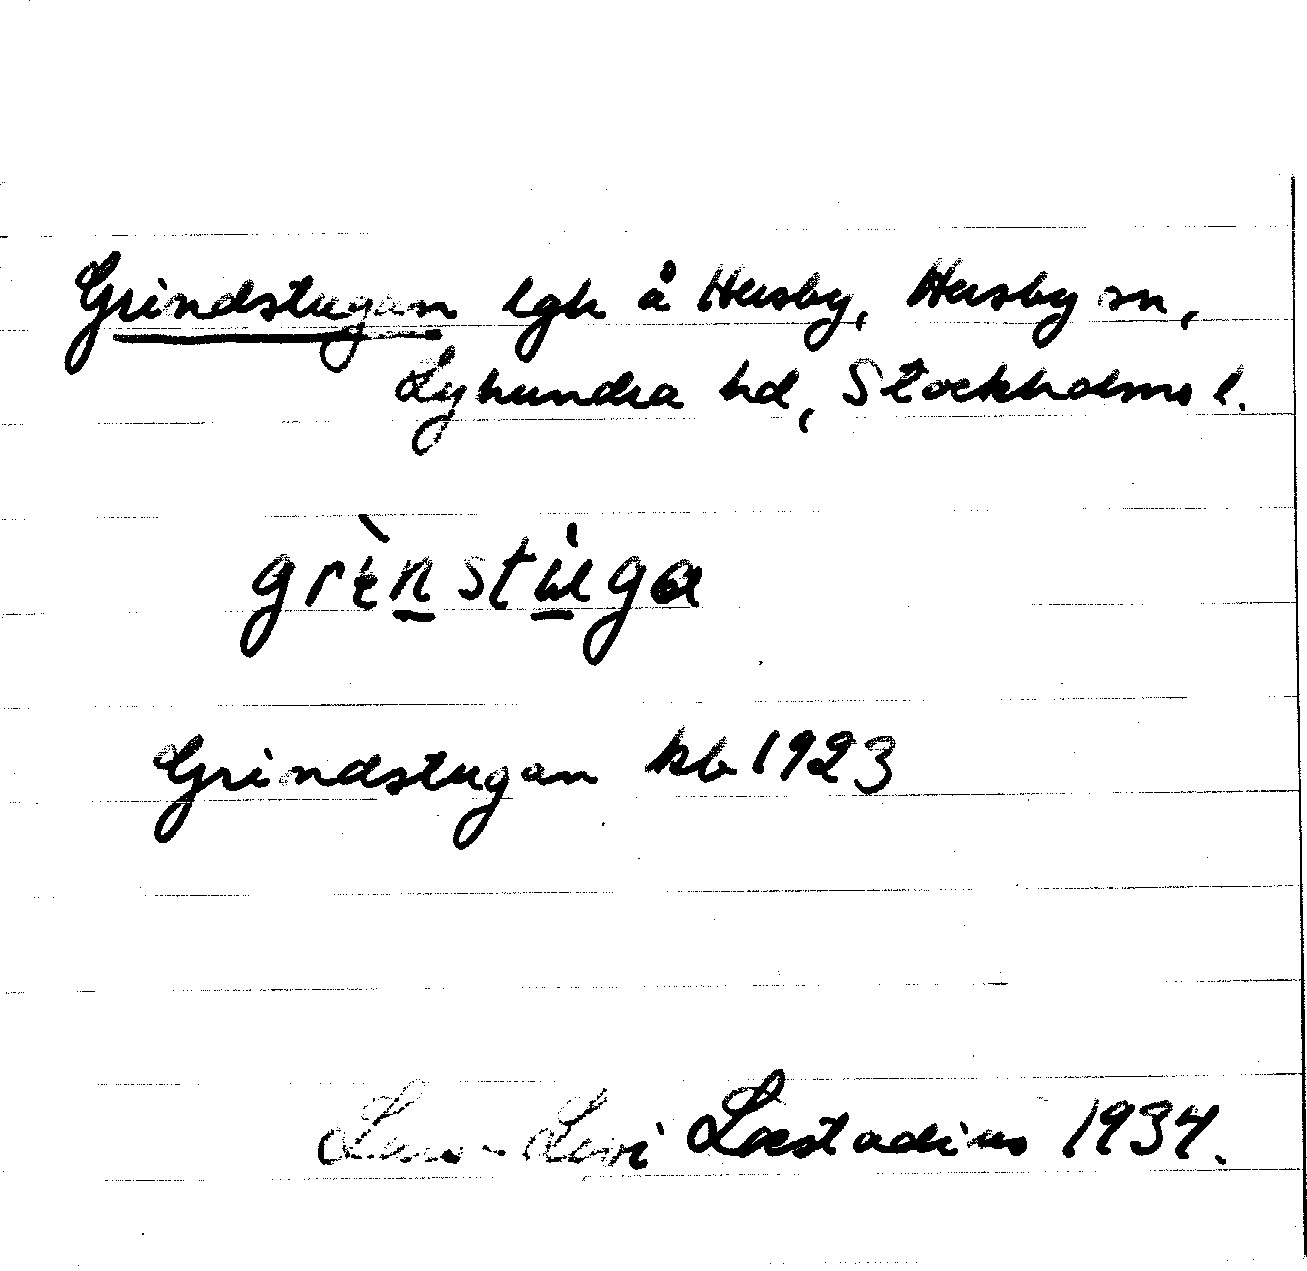 Grindstugan lgh å Husby, Husby sn,
Lyhundra hd, Stockholms l.
grènstùga
Grindstugan kb 1923
Lars-Levi Læstadius 1934.